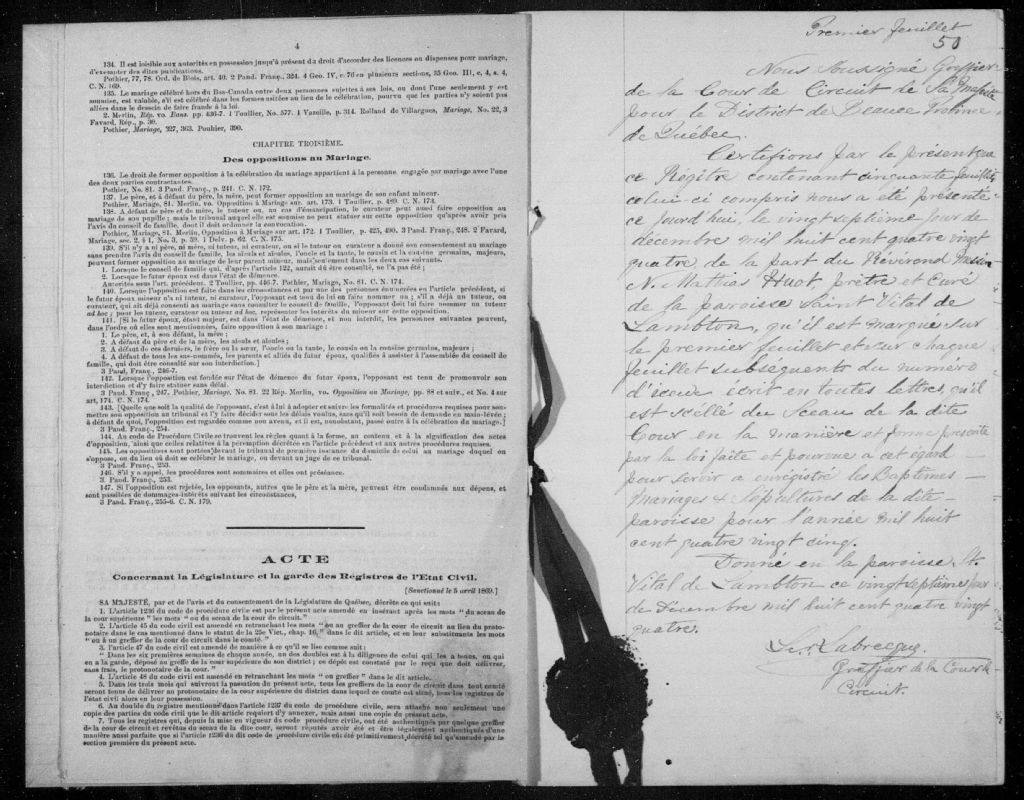 4
134. Il est loisible aux autorités en possession jusqu'à présent du droit d'accorder des licences ou dispenses pour mariage,
d'exempter des dites publications.
Pothier, 77, 78. Ord. de Blois, art. 40. 2 Pand. Franç., 324. 4 Geo. IV, c. 76 en plusieurs sections, 35 Geo. III, c, 4, s. 4,
C. N. 169.
135. Le mariage célébré hors du Bas-Canada entre deux personnes sujettes à ses lois, ou dont l'une seulement y est
soumise, est valable, s'il est célébré dans les formes usitées au lieu de la célébration, pourvu que les parties n'y soient pas
allées dans le dessein de faire fraude à la loi.
2. Merlin, Rép. vo. Bans. pp. 436-7. 1 Toullier, No. 577. 1 Vazeille, p. 314. Rolland de Villargues, Mariage, No. 22, 3
Favard, Rép., p. 30.
Pothier, Mariage, 227, 363. Pouhier, 390.
CHAPITRE TROISIÈME.
Des oppositions au Mariage.
136. Le droit de former opposition à la célébration du mariage appartient à la personne engagée par mariage avec l'une
des deux parties contractantes.
Pothier, No. 81. 3 Pand. Franç., p. 241. C. N. 172.
137. Le père, et à défaut du père, la mère, peut former opposition au mariage de son enfant mineur.
Pothier, Mariage, 81. Merlin, vo. Opposition à Mariage sur. art. 173. 1 Toullier, p. 489. C. N. 173.
138. A défaut de père et de mère, le tuteur ou, au cas d'émancipation, le curateur peut aussi faire opposition au
mariage de son pupille; mais le tribunal auquel elle est soumise ne peut statuer sur cette opposition qu'après avoir pris
l'avis du conseil de famille, dont il doit ordonner la convocation.
Pothier, Mariage, 81. Merlin, Opposition à Mariage sur art. 172. 1 Toullier, p. 425, 490. 3 Pand. Franç., 248. 2 Favard,
Mariage, sec. 2, § 1, No. 3, p. 59. 1 Delv. p. 62. C. N. 175.
139. S'il n'y a ni père, ni mère, ni tuteur, ni curateur, ou si le tuteur ou curateur a donné son consentement au mariage
sans prendre l'avis du conseil de famille, les aïeuls et aïeules, l'oncle et la tante, le cousin et la cousine germains, majeurs,
peuvent former opposition au mariage de leur parent mineur, mais seulement dans les deux cas suivants.
1. Lorsque le conseil de famille qui, d'après l'article 122, aurait dû être consulté, ne l'a pas été;
2. Lorsque le futur époux est dans l'état de démence.
Autorités sous l'art. précédent. 2 Toullier, pp. 446-7. Pothier, Mariage, No. 81. C. N. 174.
140. Lorsque l'opposition est faite dans les circonstances et par une des personnes énumérées en l'article précédent, si
le futur époux mineur n'a ni tuteur, ni curateur, l'opposant est tenu de lui en faire nommer un; s'il a déjà un tuteur, ou
curateur, qui ait déjà consenti au mariage sans consulter le conseil de famille, l'opposant doit lui faire nommer un tuteur
ad hoc; pour les tuteur, curateur ou tuteur ad hoc, représenter les intérêts du mineur sur cette opposition.
141. [Si le futur époux, étant majeur, est dans l'état de démence, et non interdit, les personnes suivantes peuvent,
dans l'ordre où elles sont mentionnées, faire opposition à son mariage:
1. Le père, et, à son défaut, la mère;
2. A défaut du père et de la mère, les aïeuls et aïeules;
3. A défaut de ces derniers, le frère ou la sœur, l'oncle ou la tante, le cousin ou la cousine germains, majeurs;
4. A défaut de tous les sus-nommés, les parents et alliés du futur époux, qualifiés à assister à l'assemblée du conseil de
famille, qui doit être consulté sur son interdiction.]
3 Pand. Franç., 246-7.
142. Lorsque l'opposition est fondée sur l'état de démence du futur époux, l'opposant est tenu de promouvoir son
interdiction et d'y faire statuer sans délai.
3 Pand. Franç., 247. Pothier, Mariage, No. 81. 22 Rép. Merlin, vo. Opposition au Mariage, pp. 88 et suiv., et No. 4 sur
art. 174. C. N. 174.
143. [Quelle que soit la qualité de l'opposant, c'est à lui à adopter et suivre les formalités et procédures requises pour sou-
mettre son opposition au tribunal et l'y faire décider sous les délais voulus, sans qu'il soit besoin de demande en main-levée;
à défaut de quoi, l'opposition est regardée comme non avenue, et il est, nonobstant, passé outre à la célébration du mariage.]
3 Pand. Franç., 254.
144. Au code de Procédure Civile se trouvent les règles quant à la forme, au contenu et à la signification des actes
d'opposition, ainsi que celles relatives à la péremption décrétée en l'article précédent et aux autres procédures requises.
145. Les oppositions sont portées devant le tribunal de première instance du domicile de celui au mariage duquel on
s'oppose, ou du lieu où doit se célébrer le mariage, ou devant un juge de ce tribunal.
3 Pand. Franç., 253.
146. S'il y a appel, les procédures sont sommaires et elles ont préséance.
3. Pand. Franç., 253.
147. Si l'opposition est rejetée, les opposants, autres que le père et la mère, peuvent être condamnés aux dépens, et
sont passibles de dommages-intérêts suivant les circonstances,
3 Pand. Franç., 255-6. C. N. 179.
ACTE
Concernant la Législature et la garde des Régistres de l'Etat Civil.
[Sanctionné le 5 avril 1869.]
SA MAJESTÉ, par et de l'avis et du consentement de la Législature de Québec, décrète ce qui suit:
1. L'article 1236 du code de procédure civile est par le présent acte amendé en insérant après les mots "du sceau de
la cour supérieure" les mots "ou du sceau de la cour de circuit."
2. L'article 45 du code civil est amendé en retranchant les mots "ou au greffier de la cour de circuit au lieu du proto-
notaire dans le cas mentionné dans le statut de la 25e Vict., chap. 16," dans le dit article, et en leur substituant les mots
"ou à un greffier de la cour de circuit dans le comté."
3. l'article 47 du code civil est amendé de manière à ce qu'il se lise comme suit:
"Dans les six premières semaines de chaque année, un des doubles est à la diligence de celui qui les a tenus, ou qui
en a la garde, déposé au greffe de la cour supérieure de son district; ce dépôt est constaté par le reçu que doit délivrer,
sans frais, le protonotaire de la cour."
4. L'article 48 du code civil est amendé en retranchant les mots "ou greffier" dans le dit article.
5. Dans les trois mois qui suivront la passation du présent acte, tous les greffiers de la cour de circuit dans tout comté
seront tenus de délivrer au protonotaire de la cour supérieure du district dans lequel ce comté est situé, tous les registres de
l'état civil alors en leur possession.
6. Au double du registre mentionné dans l'article 1237 du code de procédure civile, sera attaché non seulement une
copie des parties du code civil que le dit article requiert d'y annexer, mais aussi une copie du présent acte.
7. Tous les registres qui, depuis la mise en vigueur du code procédure civile, ont été authentiqués par quelque greffier
de la cour de circuit et revêtus du sceau de la dite cour, seront réputés avoir été et être légalement authentiqués d'une
manière aussi parfaite que si l'article 1236 du dit code de procédure civile eût été primitivement décrété tel qu'amendé par la
section première du présent acte.
Premier feuillet
50
Nous soussigné Greffier
de la Cour de Circuit de Sa Majesté
pour le District de Beauce Province
de Québec.
Certifions par le présent que
ce Régitre contenant cinquante feuillets
celui-ci compris nous a été présenté
ce jourd'hui, le vingt septième jour de
décembre mil huit cent quatre vingt
quatre, de la part du Révérend Messire
N. Mathias Huot prêtre et Curé
de la paroisse Saint Vital de
Lambton, qu'il est marqué sur
le premier feuillet et sur chaque
feuillet subséquents du numéro
d'iceux écrit en toutes lettres, qu'il
est scellé du Sceau de la dite
Cour en la manière et forme préscrite
par la loi faite et pourvue à cet égard
pour servir a enrégistré les Baptêmes
Mariages & Sépultures de la dite
paroisse pour l'année mil huit
cent quatre vingt cinq.
Donné en la paroisse St.
Vital de Lambton ce vingt septième jour
de Décembre mil huit cent quatre vingt
quatre.
Labrecque
Greffier de la Cour de
Circuit.